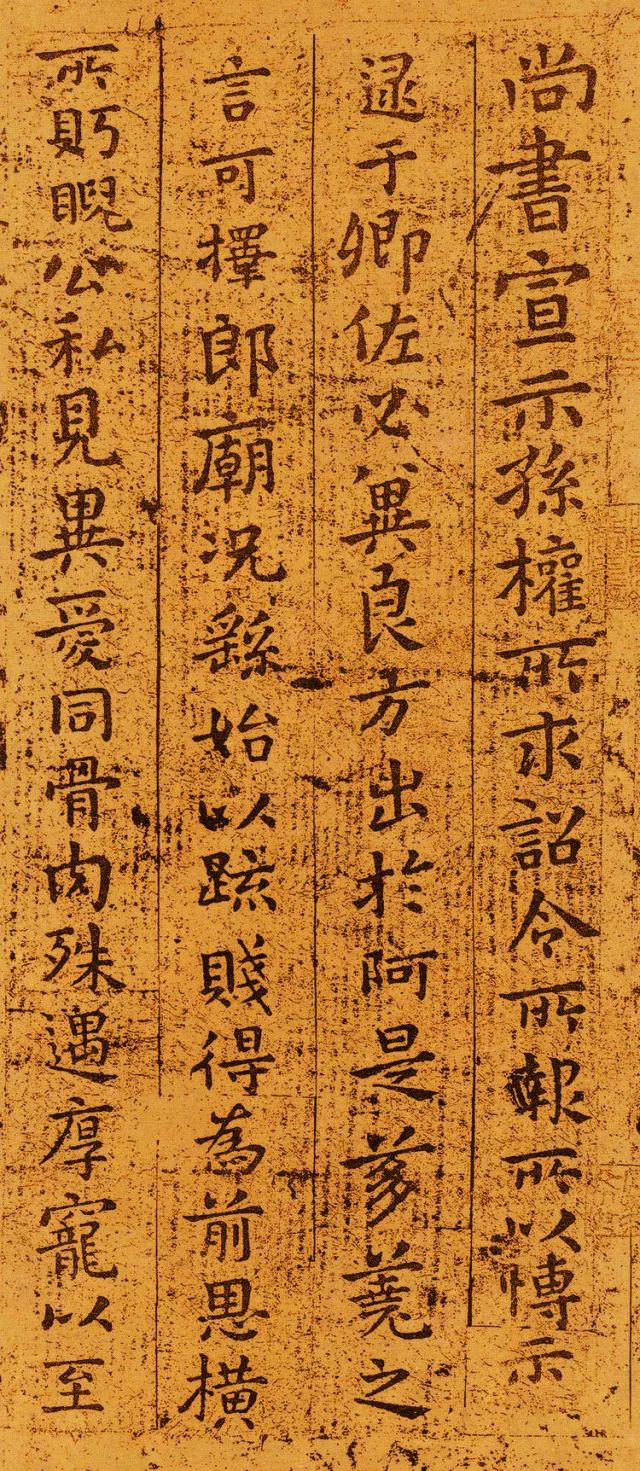 尚書宣示孫權所求詔令所報所以愽示
逮于卿佐必兾良方出於阿是芻蕘之
言可擇郎廟況繇始以疏賤得為前恩橫
所盱睨公私見異愛同骨肉殊遇厚寵以至